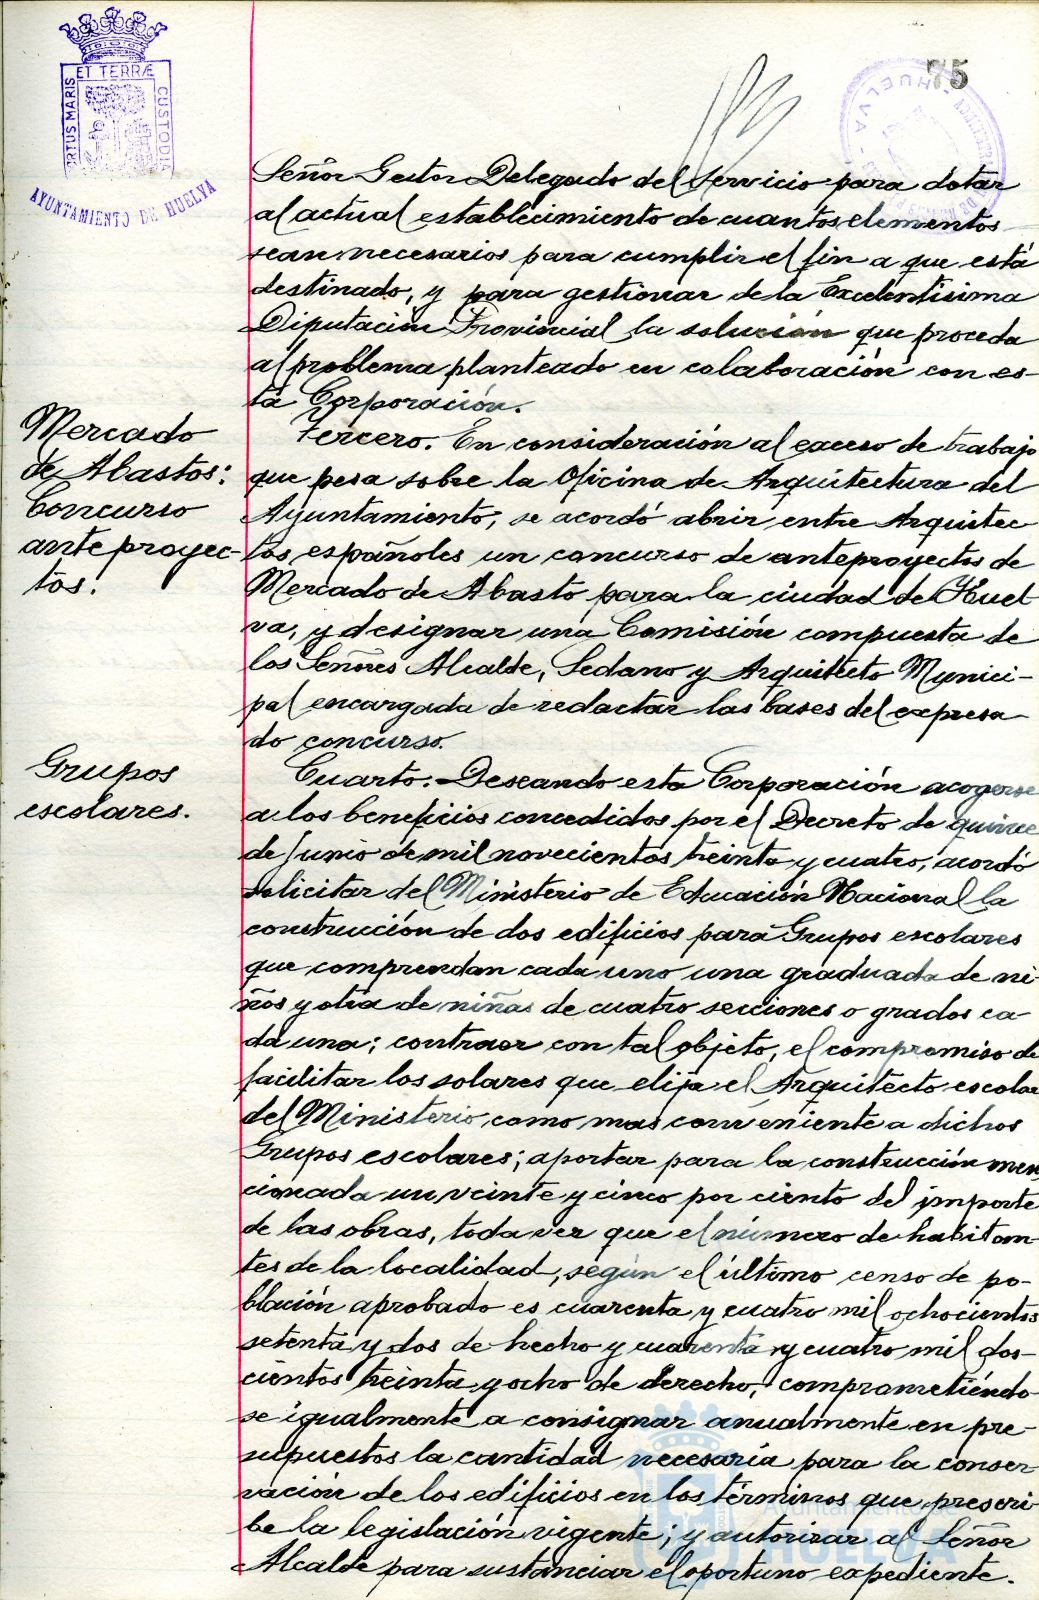 ET TERRÆ
CUSTODIA
AYUNTAMIENTO DE HUELVA
75
HUELVA
Señor Gestor Delegado del Servicio para dotar
al actual establecimiento de cuantos elementos
sean necesarios para cumplir el fin a que está
destinado, y para gestionar de la Excelentisima
Diputación Provincial la solución que proceda
al problema planteado en colaboración con es-
ta Corporación.
Mercado
de Abastos:
Concurso
anteproyec-
tos.
Tercero. En consideración al exceso de trabajo
que pesa sobre la Oficina de Arquitectura del
Ayuntamiento, se acordó abrir entre Arquitec
tos españoles un concurso de anteproyectos de
Mercado de Abasto para la ciudad de Huel
va, y designar una Comisión compuesta de
los Señores Alcalde, Sedano y Arquitecto Munici-
pal encargada de redactar las bases del expresa
do concurso.
Grupos
escolares.
Cuarto. Deseando esta Corporación acogerse
a los beneficios concedidos por el Decreto de quince
de Junio de mil novecientos treinta y cuatro, acordó
solicitar del Ministerio de Educación Nacional la
construcción de dos edificios para Grupos escolares
que comprendan cada uno una graduada de ni-
ños y otra de niñas de cuatro secciones o grados ca-
da una; contraer con tal objeto, el compromiso de
facilitar los solares que elija el Arquitecto escolar
del Ministerio, como mas conveniente a dichos
Grupos escolares; aportar para la construcción men
cionada un veinte y cinco por ciento del importe
de las obras, toda vez que el número de habitan-
tes de la localidad, según el último censo de po-
blación aprobado es cuarenta y cuatro mil ochocientos
setenta y dos de hecho y cuarenta y cuatro mil dos-
cientos treinta y ocho de derecho, comprometiéndo
se igualmente a consignar anualmente en pre-
supuestos la cantidad necesaria para la conser
vación de los edificios en los términos que prescri
be la legislación vigente; y autorizar al Señor
Alcalde para sustanciar el oportuno expediente.
Ayuntamiento de
HUELVA